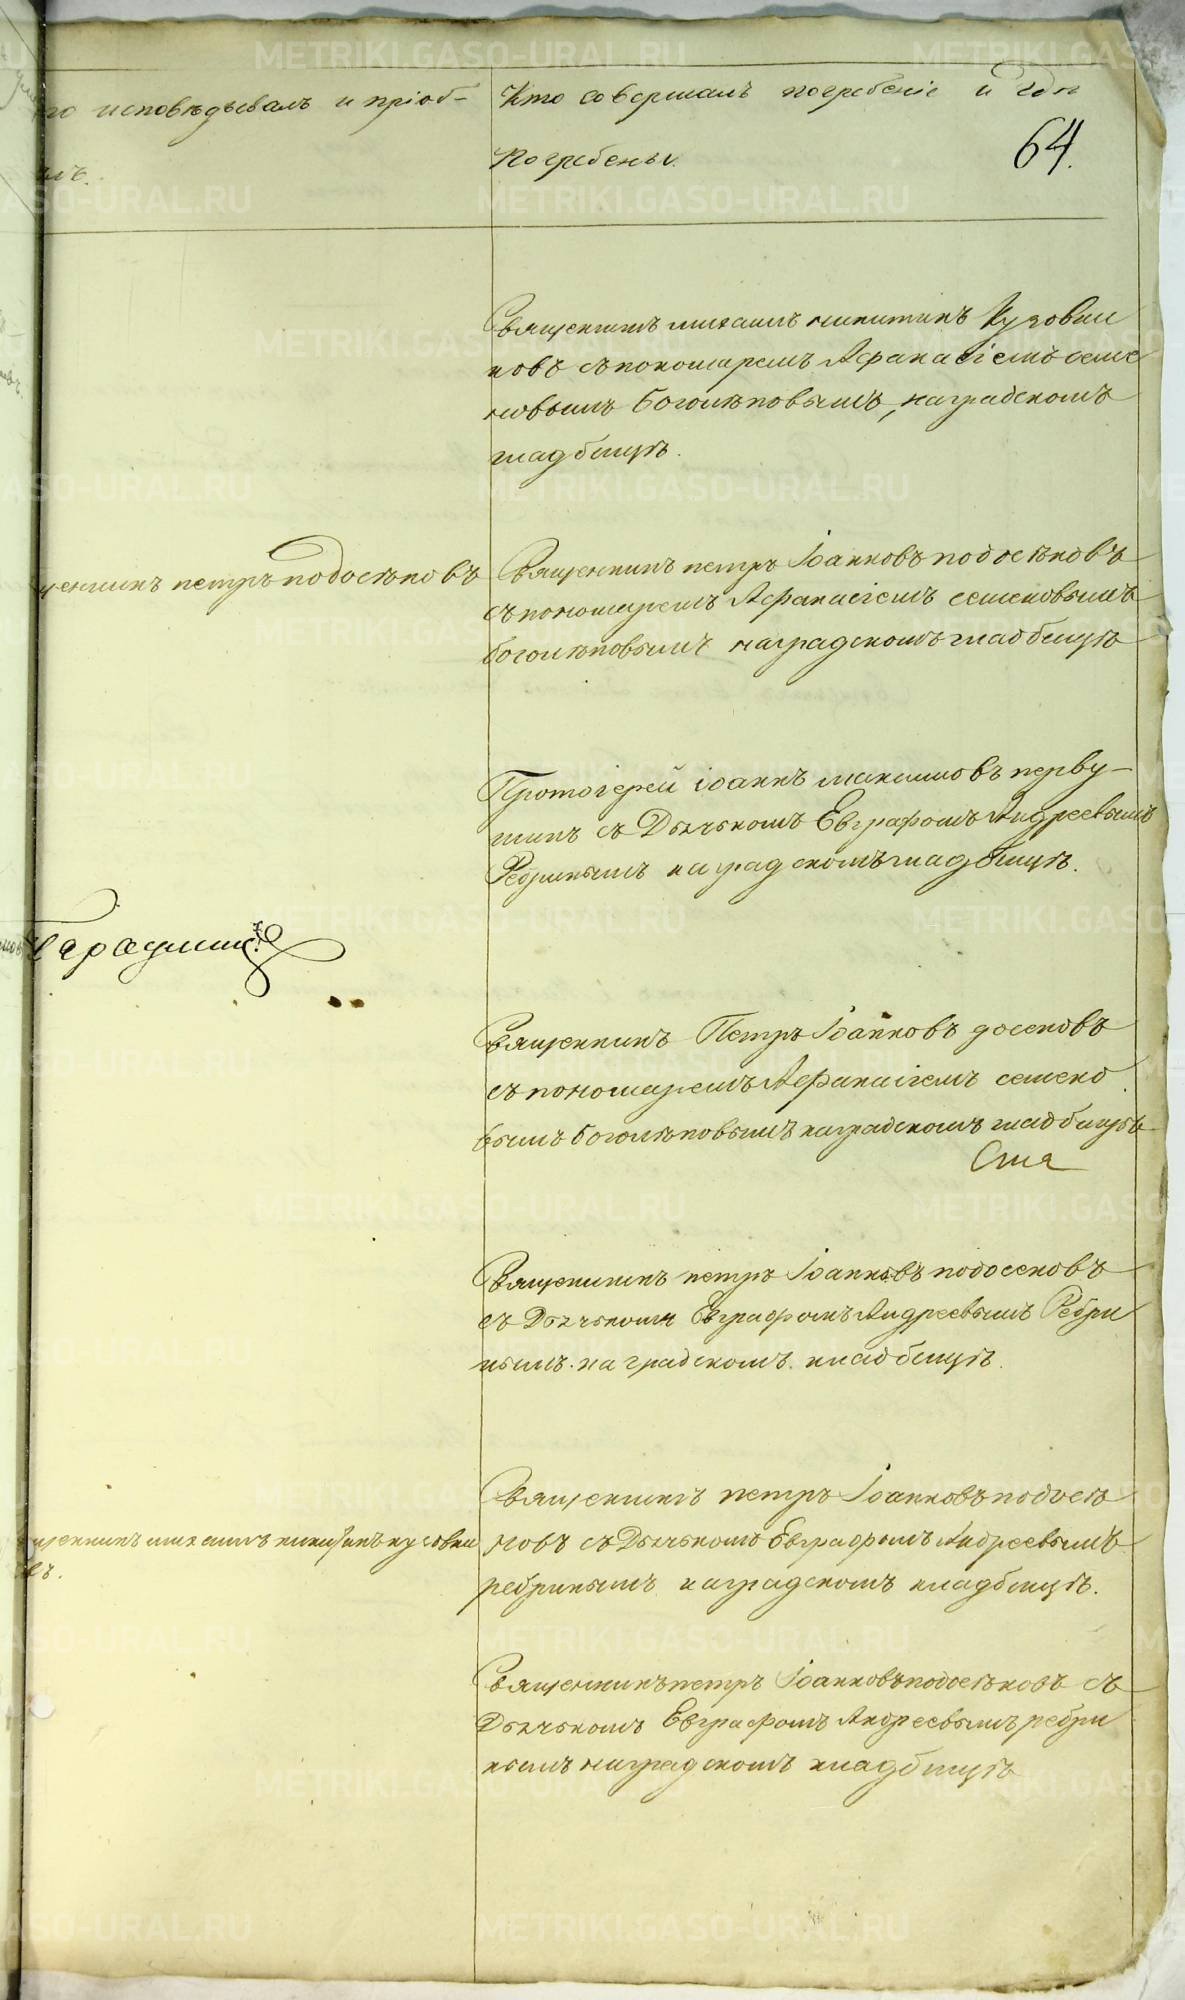 то исповѣдывалъ и пріоб-
илъ.
Кто совершалъ погребеніе и гдѣ
погребены.
64.
Священникъ михаилъ никитинъ Кузовни
ковъ съ пономаремъ Афанасіемъ семе
новымъ боголѣповымъ, на градскомъ
кладбищѣ.
щенникъ петръ подосѣновъ
Священникъ петръ Іоанновъ подосѣновъ
съ пономаремъ Афанасіемъ семеновымъ
боголѣповымъ на градскомъ кладбищѣ
Протоіерей іоаннъ максимовъ перву-
шинъ съ Дьячькомъ Евграфомъ Андреевымъ
Ребринымъ на градскомъ кладбищѣ.
Священникъ Петръ Іоанновъ досеновъ
съ пономаремъ Афанасіемъ семено
вымъ боголѣповымъ на градскомъ кладбищѣ
Священникъ петръ Іоанновъ подосеновъ
съ Дьячькомъ Евграфомъ Андреевымъ Ребри
нымъ. на градскомъ. кладбищѣ.
щенникъ михаилъ никитинъ кузовни
въ.
Священникъ петръ Іоанновъ подосѣ
новъ съ Дьячькомъ Евграфомъ Андреевымъ
ребринымъ на градскомъ кладбищѣ.
Священникъ петръ Іоанновъ подосѣновъ съ
Дьячькомъ Евграфомъ Андреевымъ ребри
нымъ на градскомъ кладбищѣ
METRIKI.GASO-URAL.RU